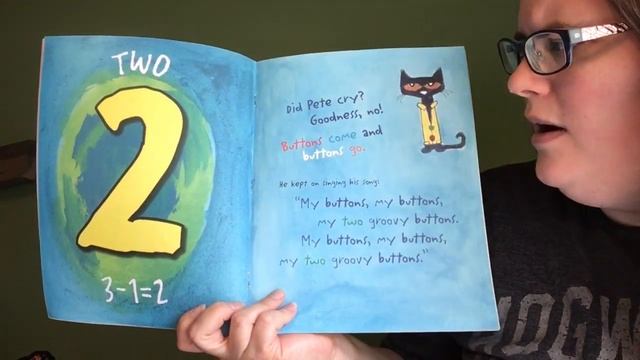 TWO
2
3-1=2
Did Pete cry?
Goodness, no!
Buttons come and
buttons go.
He kept on singing his song:
"My buttons, my buttons,
my two groovy buttons.
My buttons, my buttons,
my two groovy buttons."